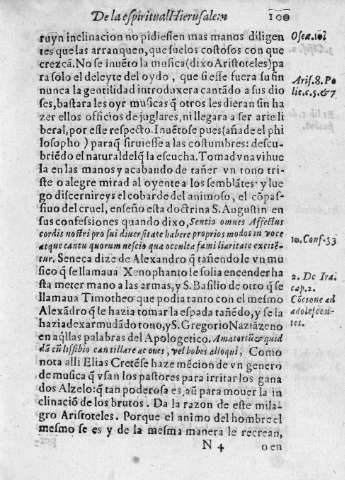 De la espiritual Hierusalem 100
ruyn inclinacion no pidiessen mas manos diligen
tes que las arranquen, que suelos costosos con que
crezcã. No se inuẽto la musica (dixo Aristoteles) pa
ra solo el deleyte del oydo, que si esse fuera su fin
nunca la gentilidad introduxera cantãdo a sus dio
ses, bastara les oyr musicas q̃ otros les dieran sin ha
zer ellos officios de juglares, ni llegara a ser arte li
beral, por esse respecto. Inuẽtose pues (añade el phi
losopho) paraq̃ siruiesse a las costumbres: descu-
briẽdo el natural delq̃ la escucha. Tomad vna vihue
la en las manos y acabando de tañer vn tono tris-
te o alegre mirad al oyente a los semblãtes: y lue
go discernireys el cobarde del animoso, el cõpas-
siuo del cruel, enseño esta doctrina S. Augustin en
sus confessiones quando dixo, Sentio omnes Affectus
cordis nostri pro sui diuersitate habere proprios modos in voce
atque cantu quorum nescio qua occulta familiaritate excitẽ-
tur. Seneca dize de Alexandro q̃ tañendole vn mu
sico q̃ se llamaua Xenophanto le solia encender ha
sta meter mano a las armas, y S. Basilio de otro q̃ se
llamaua Timotheo que podia tanto con el mesmo
Alexãdro q̃ le hazia tomar la espada tañẽdo, y se la
hazia dexar mudãdo tono, y S. Gregorio Naziãzeno
en aq̃llas palabras del Apologetico.
Como
nota alli Elias Cretẽse haze mẽcion de vn genero
de musica q̃ vsan los pastores para irritar los gana
dos Alzelo: q̃ tan poderosa es, aũ para mouer la in
clinaciõ de los brutos. Da la razon de este mila-
gro Aristoteles. Porque el animo del hombre el
mesmo se es y de la mesma manera le recrean,
N 4 o en
Oseæ. 10?
Aris. 8. Po
lit. c. 5. & 7
10. Conf. 33
2. De Ira.
cap. 2.
Cõcione ad
adolescen-
tes.